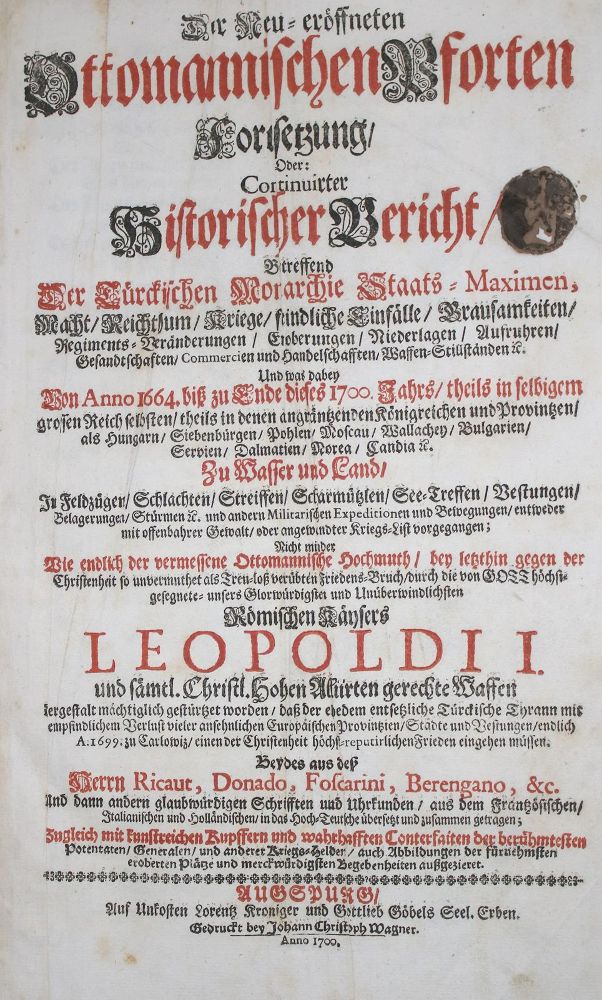 Der Neu-eröffneten
Ottomannischen Pforten
Fortsetzung/
Oder:
Continuirter
Historischer Bericht/
Betreffend
Der Türckischen Monarchie Staats-Maximen,
Macht/ Reichthum/ Kriege/ feindliche Einfälle/ Grausamkeiten/
Regiments-Veränderungen/ Eroberungen/ Niederlagen/ Aufruhren/
Gesandtschafften/ Commercien und Handelschafften/ Waffen-Stillständen ꝛc.
Und was dabey
Von Anno 1664. biß zu Ende dieses 1700. Jahrs/ theils in selbigem
grossen Reich selbsten/ theils in denen angräntzenden Königreichen und Provintzen/
als Hungarn/ Siebenbürgen/ Pohlen/ Moscau/ Wallachey/ Bulgarien/
Servien/ Dalmatien/ Morea/ Candia ꝛc.
Zu Wasser und Land/
In Feldzügen/ Schlachten/ Streiffen/ Scharmützlen/ See-Treffen/ Vestungen/
Belagerungen/ Stürmen ꝛc. und andern Militarischen Expeditionen und Bewegungen/ entweder
mit offenbahrer Gewalt/ oder angewandter Kriegs-List vorgegangen;
Nicht minder
Wie endlich der vermessene Ottomannische Hochmuth/ bey letzthin gegen der
Christenheit so unvermuthet als Treu-loß verübten Friedens-Bruch/ durch die von GOTT höchst-
gesegnete- unsers Glorwürdigsten und Unüberwindlichsten
Römischen Käysers
LEOPOLDI I.
und sämtl. Christl. Hohen Alliirten gerechte Waffen
dergestalt mächtiglich gestürtzet worden/ daß der ehedem entsetzliche Türckische Tyrann mit
empfindlichem Verlust vieler ansehnlichen Europäischen Provintzien/ Städte und Vestungen/ endlich
A: 1699. zu Carlowiz/ einen der Christenheit höchst-reputirlichen Frieden eingehen müssen.
Beydes aus deß
Herrn Ricaut, Donado, Foscarini, Berengano, &c.
Und dann andern glaubwürdigen Schrifften und Uhrkunden/ aus dem Frantzösischen/
Italianischen und Holländischen/ in das Hoch-Teutsche übersetzt und zusammen getragen;
Zugleich mit kunstreichen Kupffern und wahrhafften Conterfaiten der berühmtesten
Potentaten/ Generalen/ und anderer Kriegs-Helden/ auch Abbildungen der fürnehmsten
eroberten Plätze und merckwürdigsten Begebenheiten außgezieret.
AUGSPURG/
Auf Unkosten Lorentz Kroniger und Gottlieb Göbels Seel. Erben.
Gedruckt bey Johann Christoph Wagner.
Anno 1700.